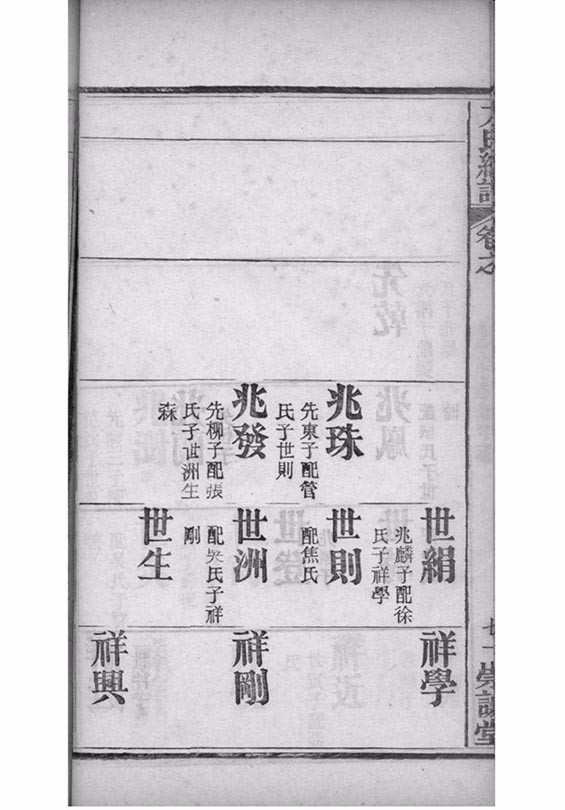 氏總譜
卷之
兆珠
先東子配管
氏子世則
兆發
先柳子配張
氏子世洲生
森
世絹
兆麟子配徐
氏子祥學
世則
配焦氏
世洲
配吳氏子祥
剛
世生
祥學
祥剛
祥興